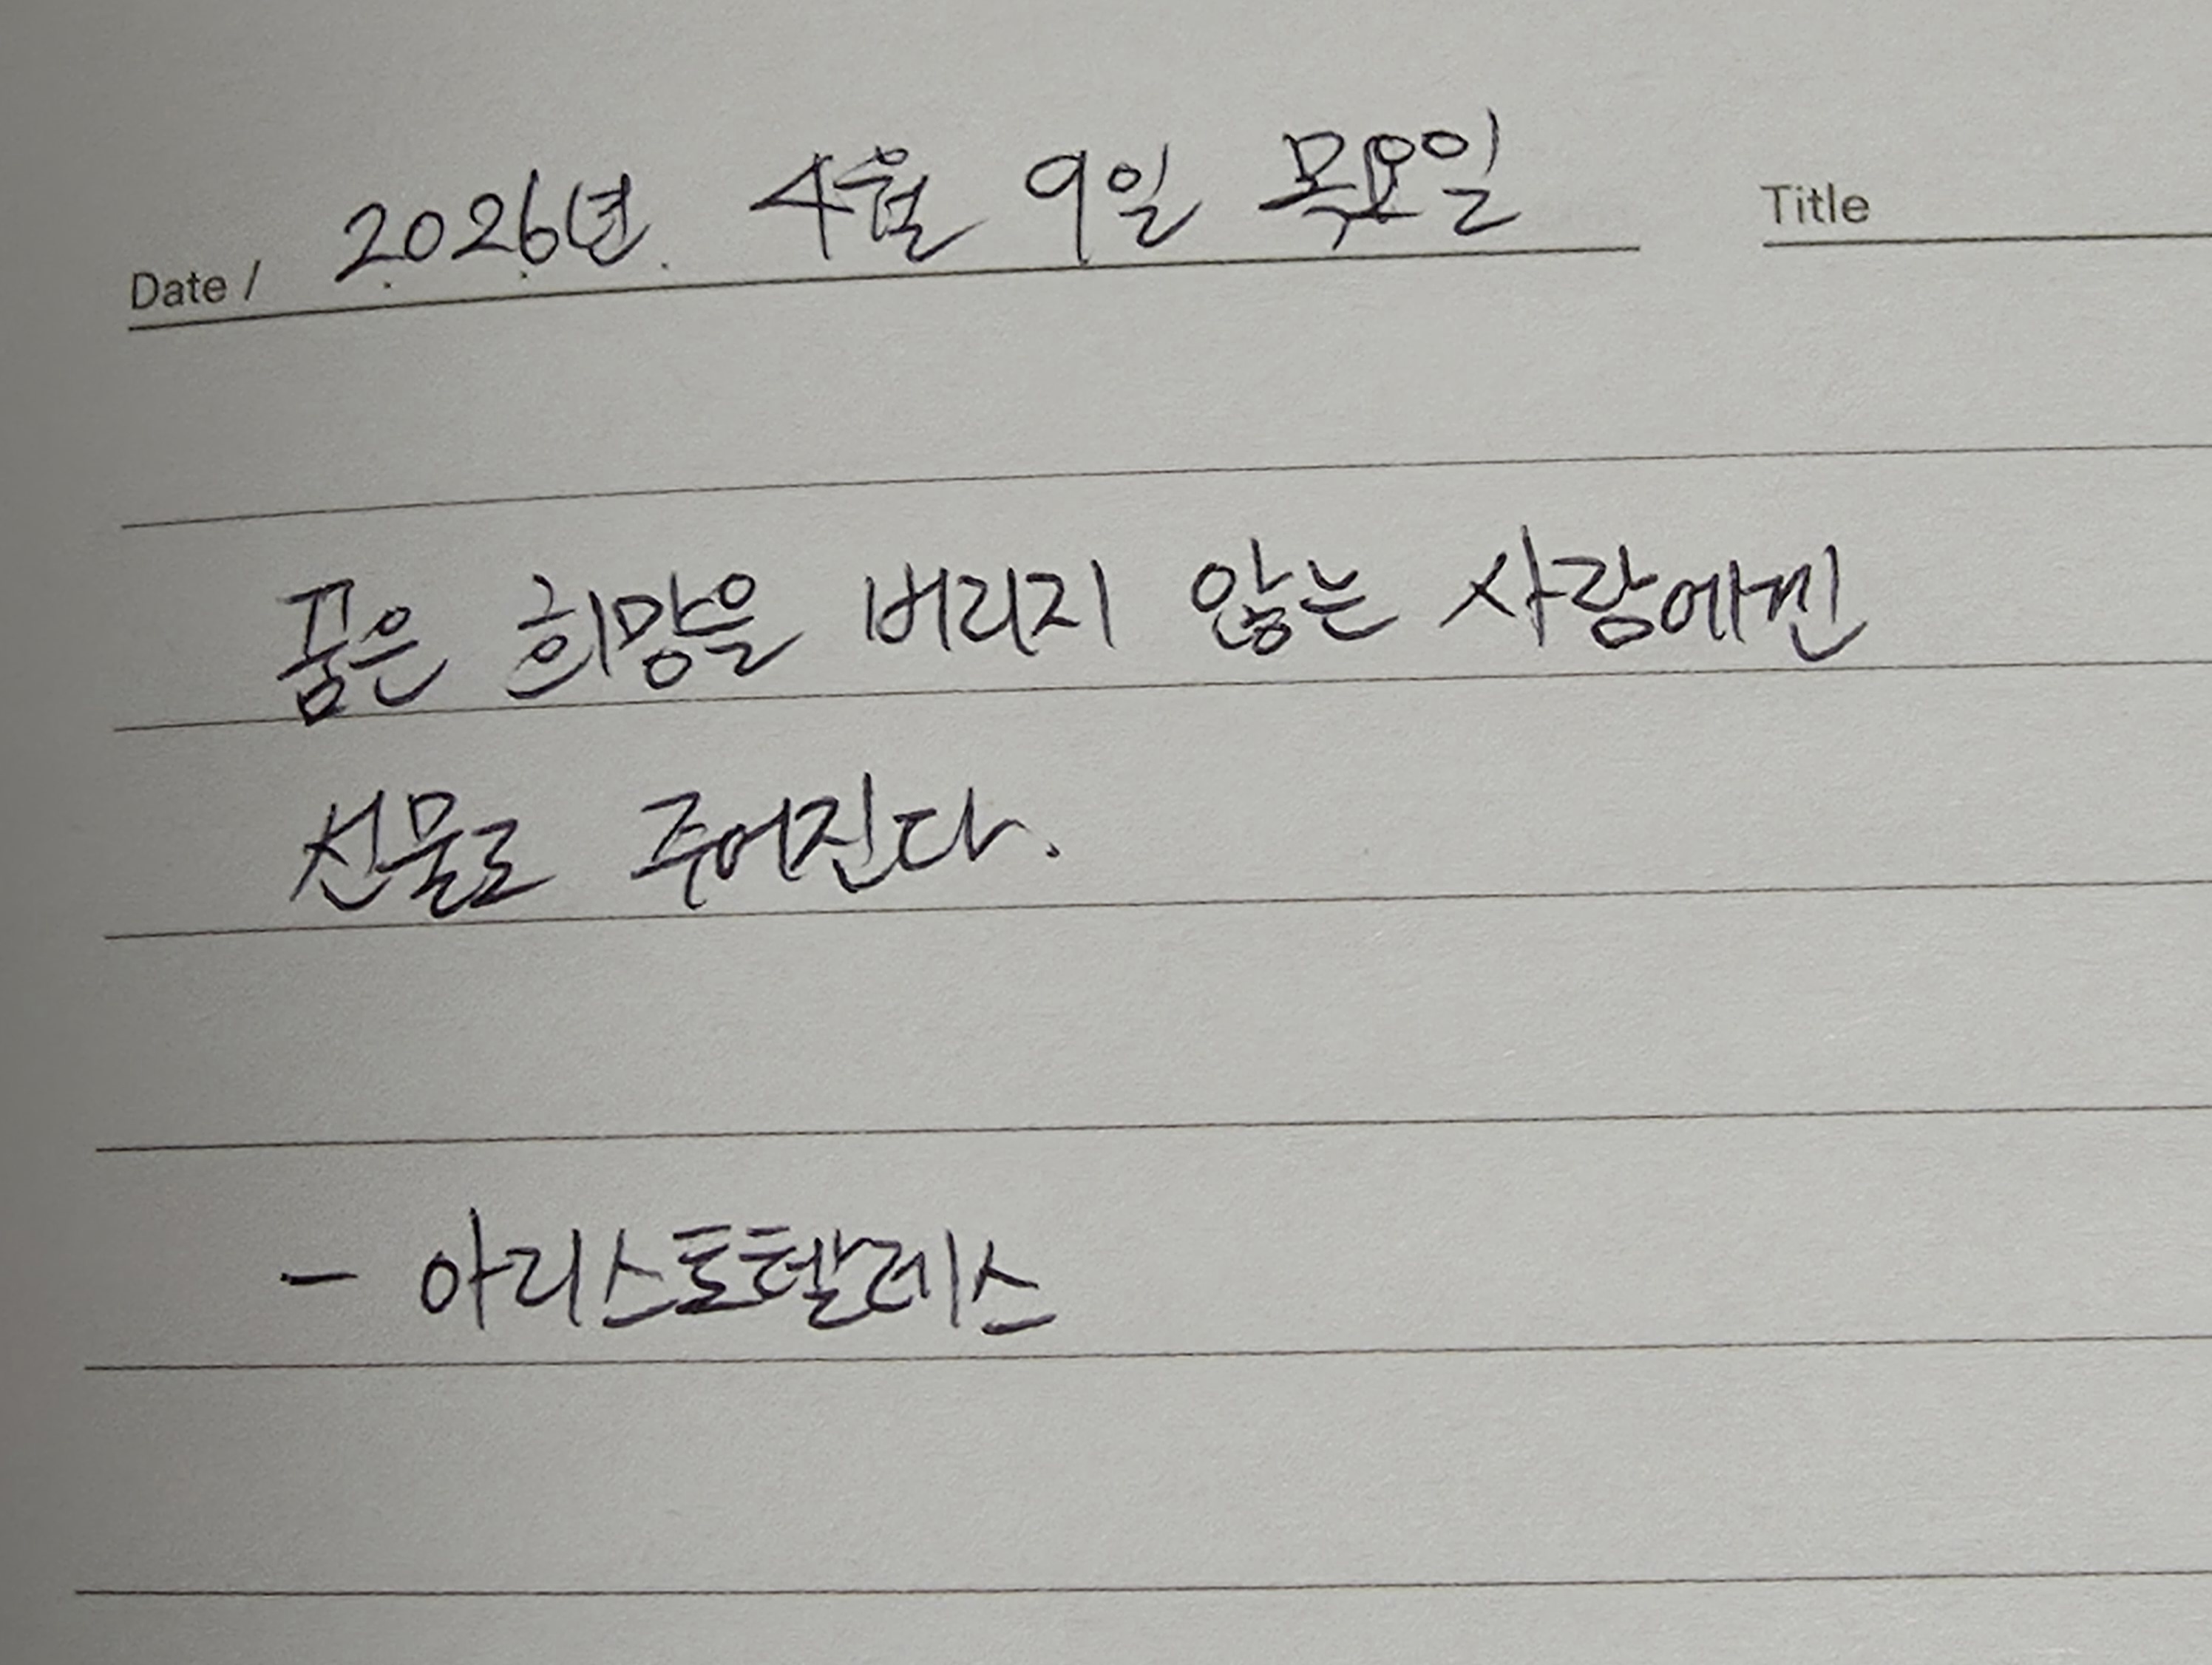 Date / 2026년 4월 9일 목요일 Title
꿈은 희망을 버리지 않는 사람에겐
선물로 주어진다.
- 아리스토텔레스